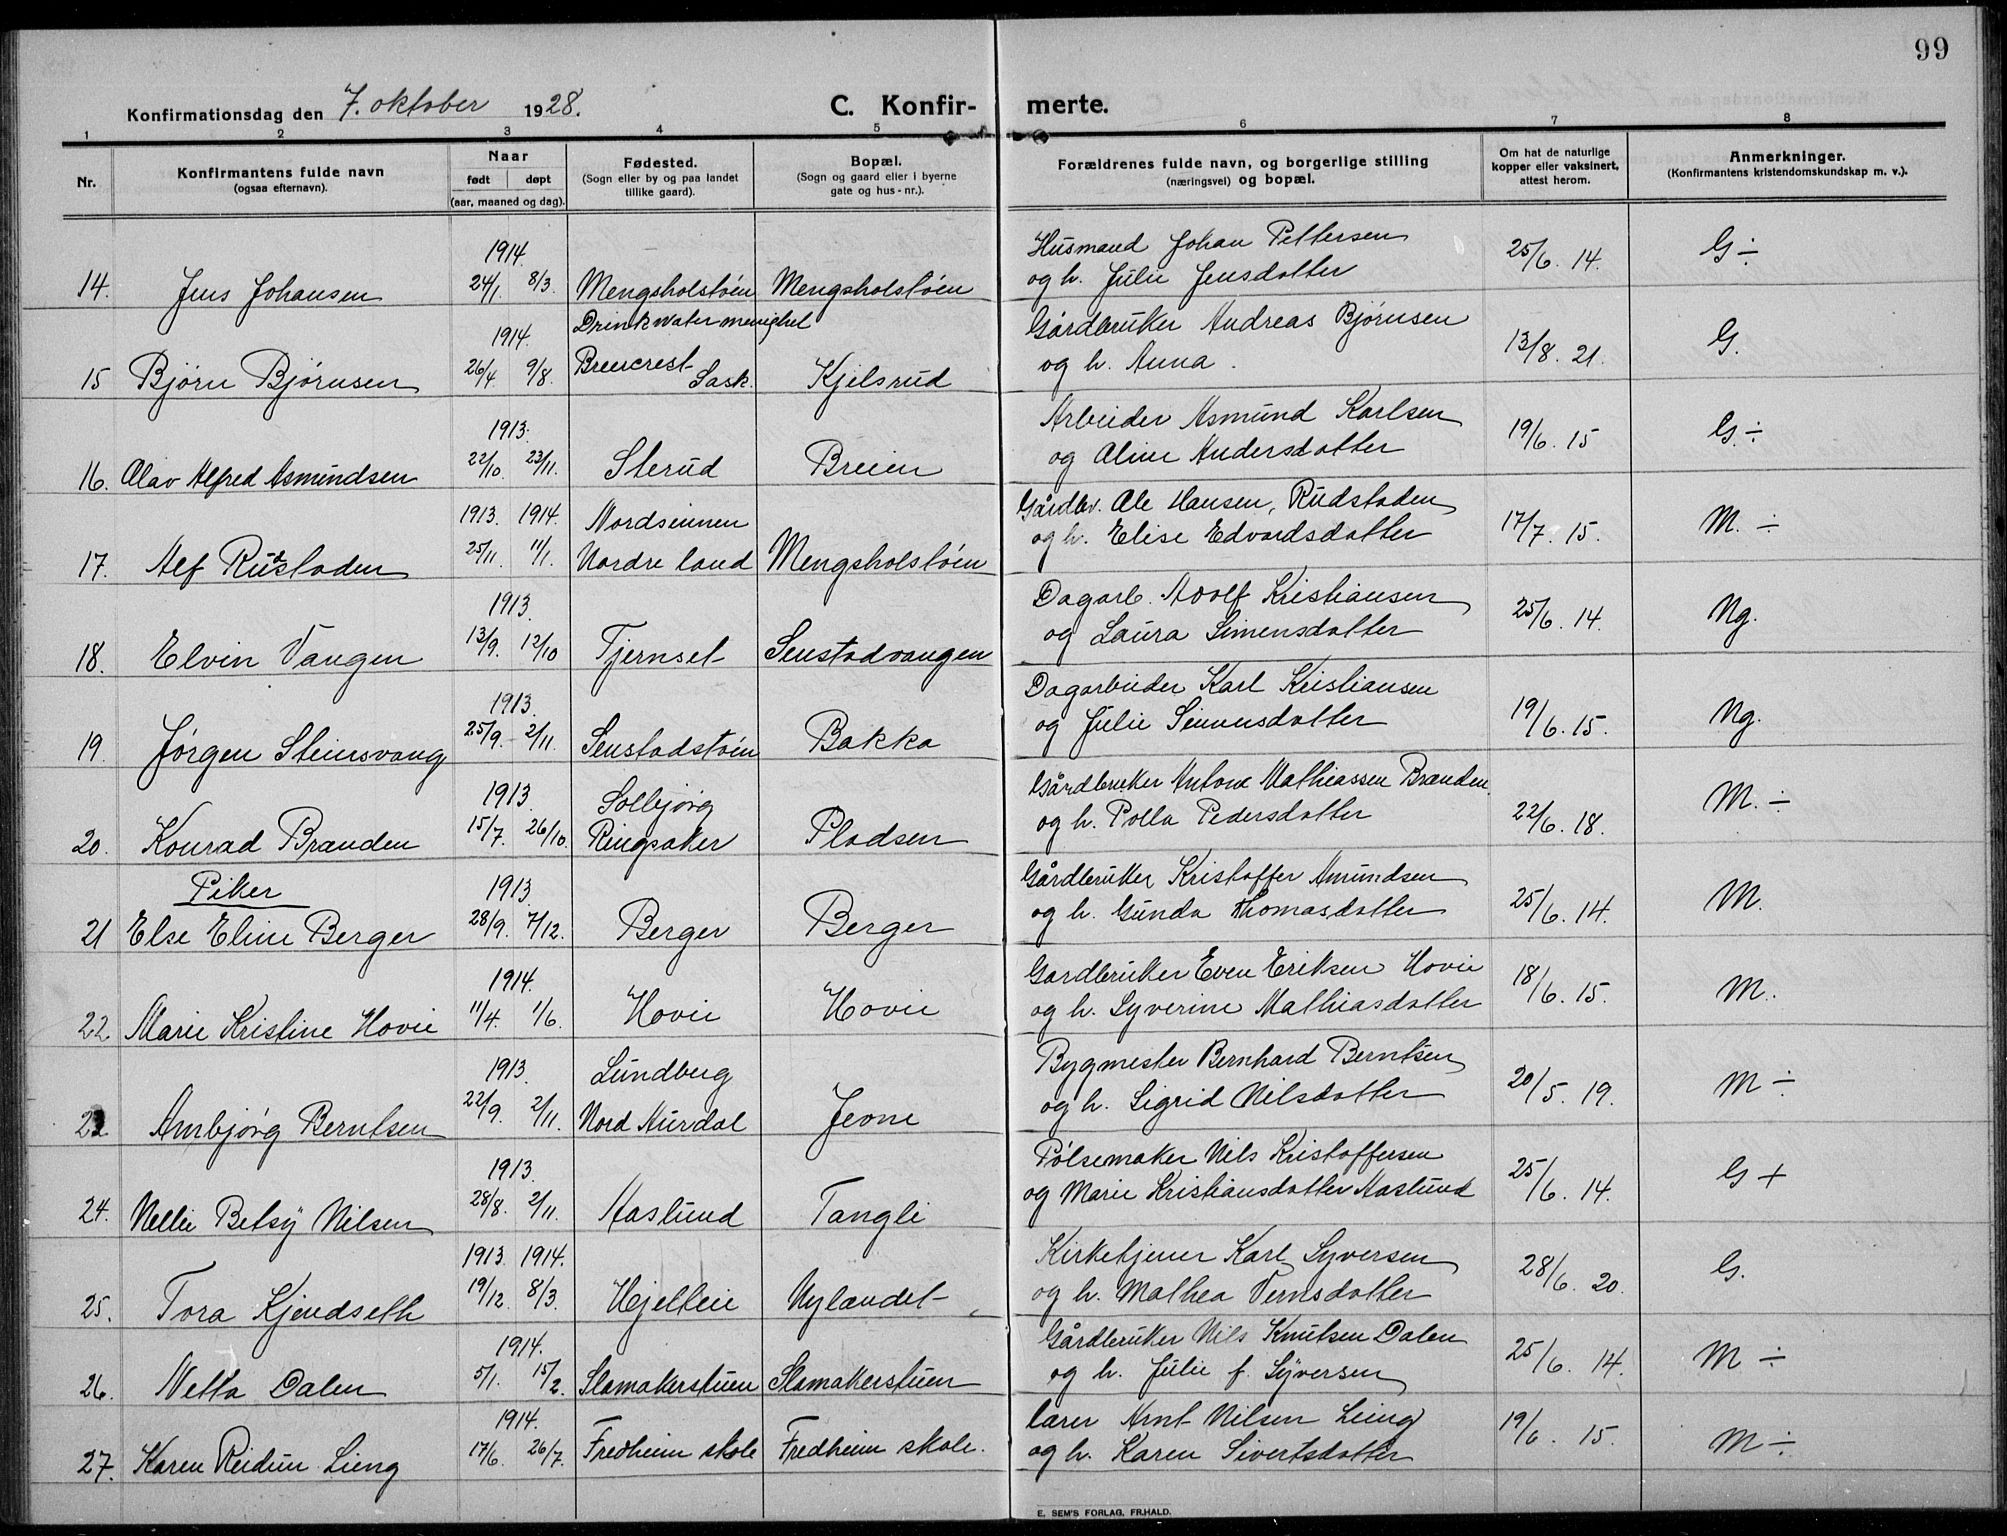 99
Konfirmationsdag den 7. oktober 1928.
C. Konfirmerte.
1 2 3 4 5 6 7 8
Nr.
Konfirmantens fulde navn
(ogsaa efternavn).
Naar
født døpt
(aar, maaned og dag).
Fødested.
(Sogn eller by og paa landet
tillike gaard).
Bopæl.
(Sogn og gaard eller i byerne
gate og hus-nr.).
Forældrenes fulde navn, og borgerlige stilling
(næringsvei) og bopæl.
Om hat de naturlige
kopper eller vaksinert,
attest herom.
Anmerkninger.
(Konfirmantens kristendomskundskap m. v.).
1914. Husmand Johan Pettersen
14. Jens Johansen 24/1. 8/3. Mengsholstøen Mengsholstøen og h. Julie Jensdatter 25/6. 14. G ÷
1914. Drinkwater menighet Gårdbruker Andreas Bjørnsen
15 Bjørn Bjørnsen 26/4 9/8. Briercrest Sask. Kjelsrud og h. Anna. 13/8. 21. G.
1913. Arbeider Asmund Karlsen
16. Olav Alfred Asmundsen 22/10. 23/11. Sterud Breien og Aline Andersdatter 19/6. 15 G. ÷
1913. 1914. Nordsinnen Gårdbr. Ole Hansen, Rudstaden
17. Alf Rudstaden 25/11. 11/1. Nordre land Mengsholstøen og h. Elise Edvardsdatter 17/7. 15. M. ÷
1913. Dagarb. Adolf Kristiansen
18. Elvin Vangen 13/9. 12/10 Tjernset Senstadvangen og Laura Simensdatter 25/6. 14. Ng.
1913. Dagarbeider Karl Kristiansen
19. Jørgen Steinsvang 25/9. 2/11. Senstadstøen Bakka og Julie Simensdatter 19/6. 15. Ng.
1913. Solbjørg Gårdbruker Anton Mathiassen Branden
20. Konrad Branden 15/7. 26/10. Ringsaker Pladsen og h. Polla Pedersdatter 22/6. 18. M. ÷
Piker
1913. Gårdbruker Kristoffer Amundsen
21 Else Eline Berger 28/9. 7/12. Berger Berger og h. Gunda Thomasdatter 25/6. 14. M.
1914. Gardbruker Even Eriksen Hovie
22 Marie Kristine Hovie 11/4. 1/6. Hovie Hovie og h. Syverine Mathiasdatter 18/6. 15. M.
1913. Lundberg Bygmester Bernhard Berntsen
23 Ambjørg Berntsen 22/9. 2/11. Nord Aurdal Jevne og h. Sigrid Nilsdatter 20/5. 19. M ÷
1913. Pølsemaker Nils Kristoffersen
24. Nellie Betsy Nilsen 28/8. 2/11. Aaslund Tangli og Marie Kristiansdatter Aaslund 25/6. 14. G +
1913. 1914. Kirketjener Karl Syversen
25. Tora Kjendseth 19/12. 8/3. Hjelleie Nylandet og h. Mathea Vernsdatter 28/6. 20. G.
1914. Gårdbruker Nils Knutsen Dalen
26. Netta Dalen 5/1. 15/2. Slamakerstuen Slamakerstuen og h. Julie f. Syversen 25/6. 14. M ÷
1914. lærer Arnt Nilsen Lieng
27. Karen Reidun Lieng 17/6. 26/7. Fredheim skole Fredheim skole. og h. Karen Sivertsdatter 19/6. 15. M ÷
E. SEM'S FORLAG, FR.HALD.